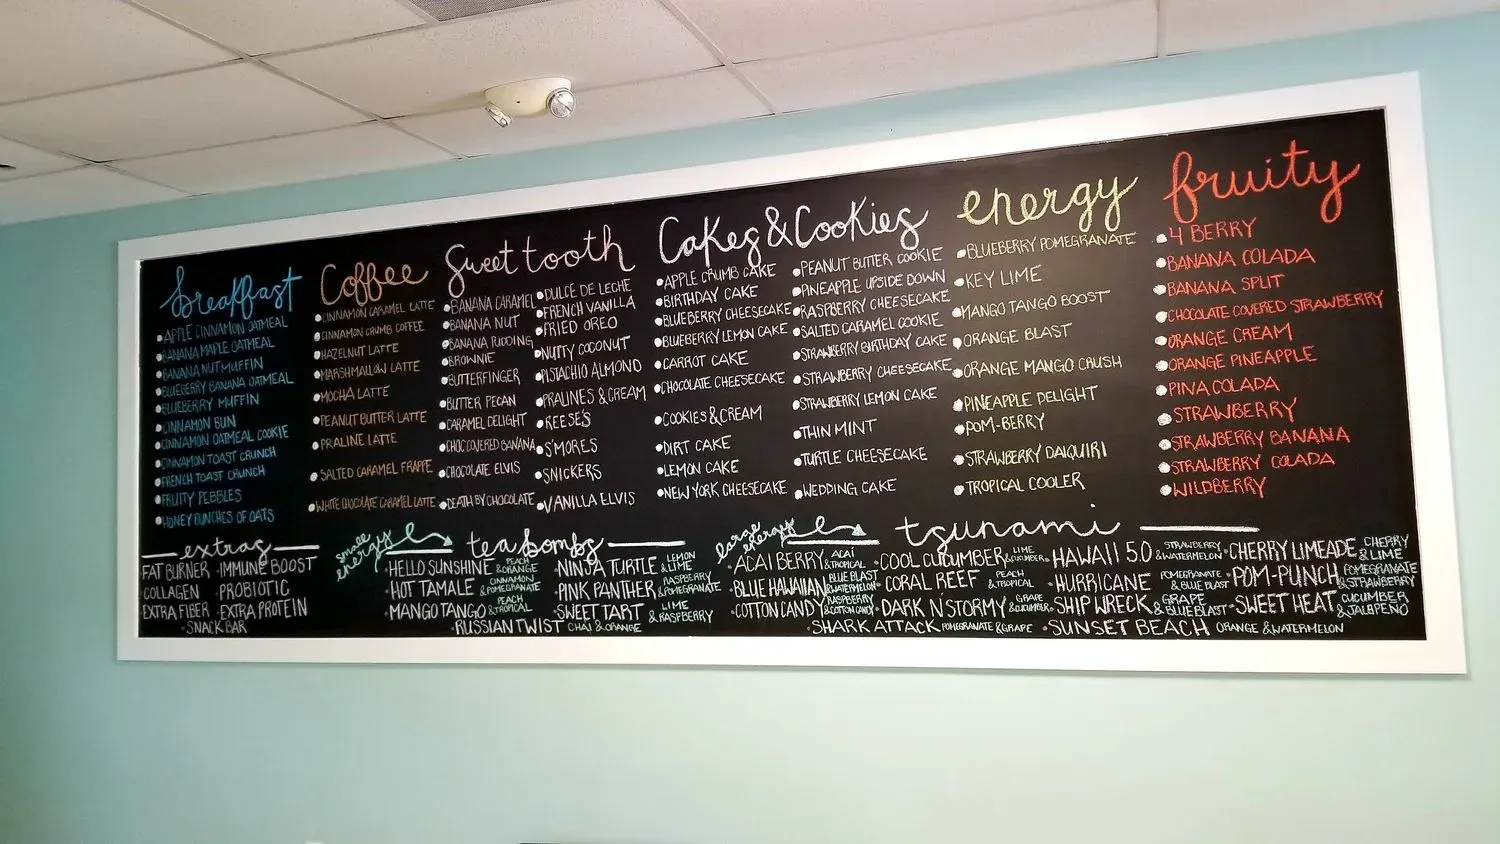 breakfast
APPLE CINNAMON OATMEAL
BANANA MAPLE OATMEAL
BANANA NUT MUFFIN
BLUEBERRY BANANA OATMEAL
BLUEBERRY MUFFIN
CINNAMON BUN
CINNAMON OATMEAL COOKIE
CINNAMON TOAST CRUNCH
FRENCH TOAST CRUNCH
FRUITY PEBBLES
HONEY BUNCHES OF OATS
Coffee
CINNAMON CARAMEL LATTE
CINNAMON CRUMB COFFEE
HAZELNUT LATTE
MARSHMALLOW LATTE
MOCHA LATTE
PEANUT BUTTER LATTE
PRALINE LATTE
SALTED CARAMEL FRAPPE
WHITE CHOCOLATE CARAMEL LATTE
Sweet tooth
BANANA CARAMEL
BANANA NUT
BANANA PUDDING
BROWNIE
BUTTERFINGER
BUTTER PECAN
CARAMEL DELIGHT
CHOC COVERED BANANA
CHOCOLATE ELVIS
DEATH BY CHOCOLATE
DULCE DE LECHE
FRENCH VANILLA
FRIED OREO
NUTTY COCONUT
PISTACHIO ALMOND
PRALINES & CREAM
REESE'S
S'MORES
SNICKERS
VANILLA ELVIS
Cakes & Cookies
APPLE CRUMB CAKE
BIRTHDAY CAKE
BLUEBERRY CHEESECAKE
BLUEBERRY LEMON CAKE
CARROT CAKE
CHOCOLATE CHEESECAKE
COOKIES & CREAM
DIRT CAKE
LEMON CAKE
NEW YORK CHEESECAKE
PEANUT BUTTER COOKIE
PINEAPPLE UPSIDE DOWN
RASPBERRY CHEESECAKE
SALTED CARAMEL COOKIE
STRAWBERRY BIRTHDAY CAKE
STRAWBERRY CHEESECAKE
STRAWBERRY LEMON CAKE
THIN MINT
TURTLE CHEESECAKE
WEDDING CAKE
energy
BLUEBERRY POMEGRANATE
KEY LIME
MANGO TANGO BOOST
ORANGE BLAST
ORANGE MANGO CRUSH
PINEAPPLE DELIGHT
POM-BERRY
STRAWBERRY DAIQUIRI
TROPICAL COOLER
fruity
4 BERRY
BANANA COLADA
BANANA SPLIT
CHOCOLATE COVERED STRAWBERRY
ORANGE CREAM
ORANGE PINEAPPLE
PINA COLADA
STRAWBERRY
STRAWBERRY BANANA
STRAWBERRY COLADA
WILDBERRY
extras
FAT BURNER · IMMUNE BOOST
COLLAGEN · PROBIOTIC
EXTRA FIBER · EXTRA PROTEIN
· SNACK BAR
small energy
tea bombs
· HELLO SUNSHINE PEACH & ORANGE
· HOT TAMALE CINNAMON & POMEGRANATE
· MANGO TANGO PEACH & TROPICAL
· RUSSIAN TWIST CHAI & ORANGE
· NINJA TURTLE LEMON & LIME
· PINK PANTHER RASPBERRY & POMEGRANATE
· SWEET TART LIME & RASPBERRY
large energy
tsunami
· ACAI BERRY ACAI & TROPICAL
· BLUE HAWAIIAN BLUE BLAST & WATERMELON
· COTTON CANDY RASPBERRY & COTTON CANDY
· SHARK ATTACK POMEGRANATE & GRAPE
· COOL CUCUMBER LIME & CUCUMBER
· CORAL REEF PEACH & TROPICAL
· DARK N' STORMY GRAPE & CUCUMBER
· HAWAII 5.0 STRAWBERRY & WATERMELON
· HURRICANE POMEGRANATE & BLUE BLAST
· SHIPWRECK GRAPE & BLUE BLAST
· SUNSET BEACH ORANGE & WATERMELON
· CHERRY LIMEADE CHERRY & LIME
· POM-PUNCH POMEGRANATE & STRAWBERRY
· SWEET HEAT CUCUMBER & JALAPEÑO